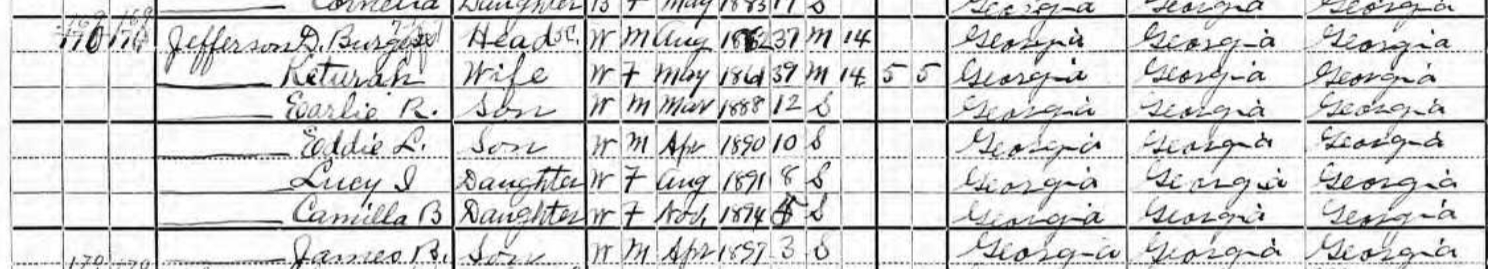 Cornelia Daughter B F May 1883 17 S Georgia Georgia Georgia
169 169
170 170 Jefferson D. Burgess Head W M Aug 1862 37 M 14 Georgia Georgia Georgia
Keturah Wife W F May 1861 39 M 14 5 5 Georgia Georgia Georgia
Earlie R. Son W M Mar 1888 12 S Georgia Georgia Georgia
Eddie L. Son W M Apr 1890 10 S Georgia Georgia Georgia
Lucy I Daughter W F Aug 1891 8 S Georgia Georgia Georgia
Camilla B Daughter W F Nov. 1894 5 S Georgia Georgia Georgia
James B. Son W M Apr 1897 3 S Georgia Georgia Georgia
170 170